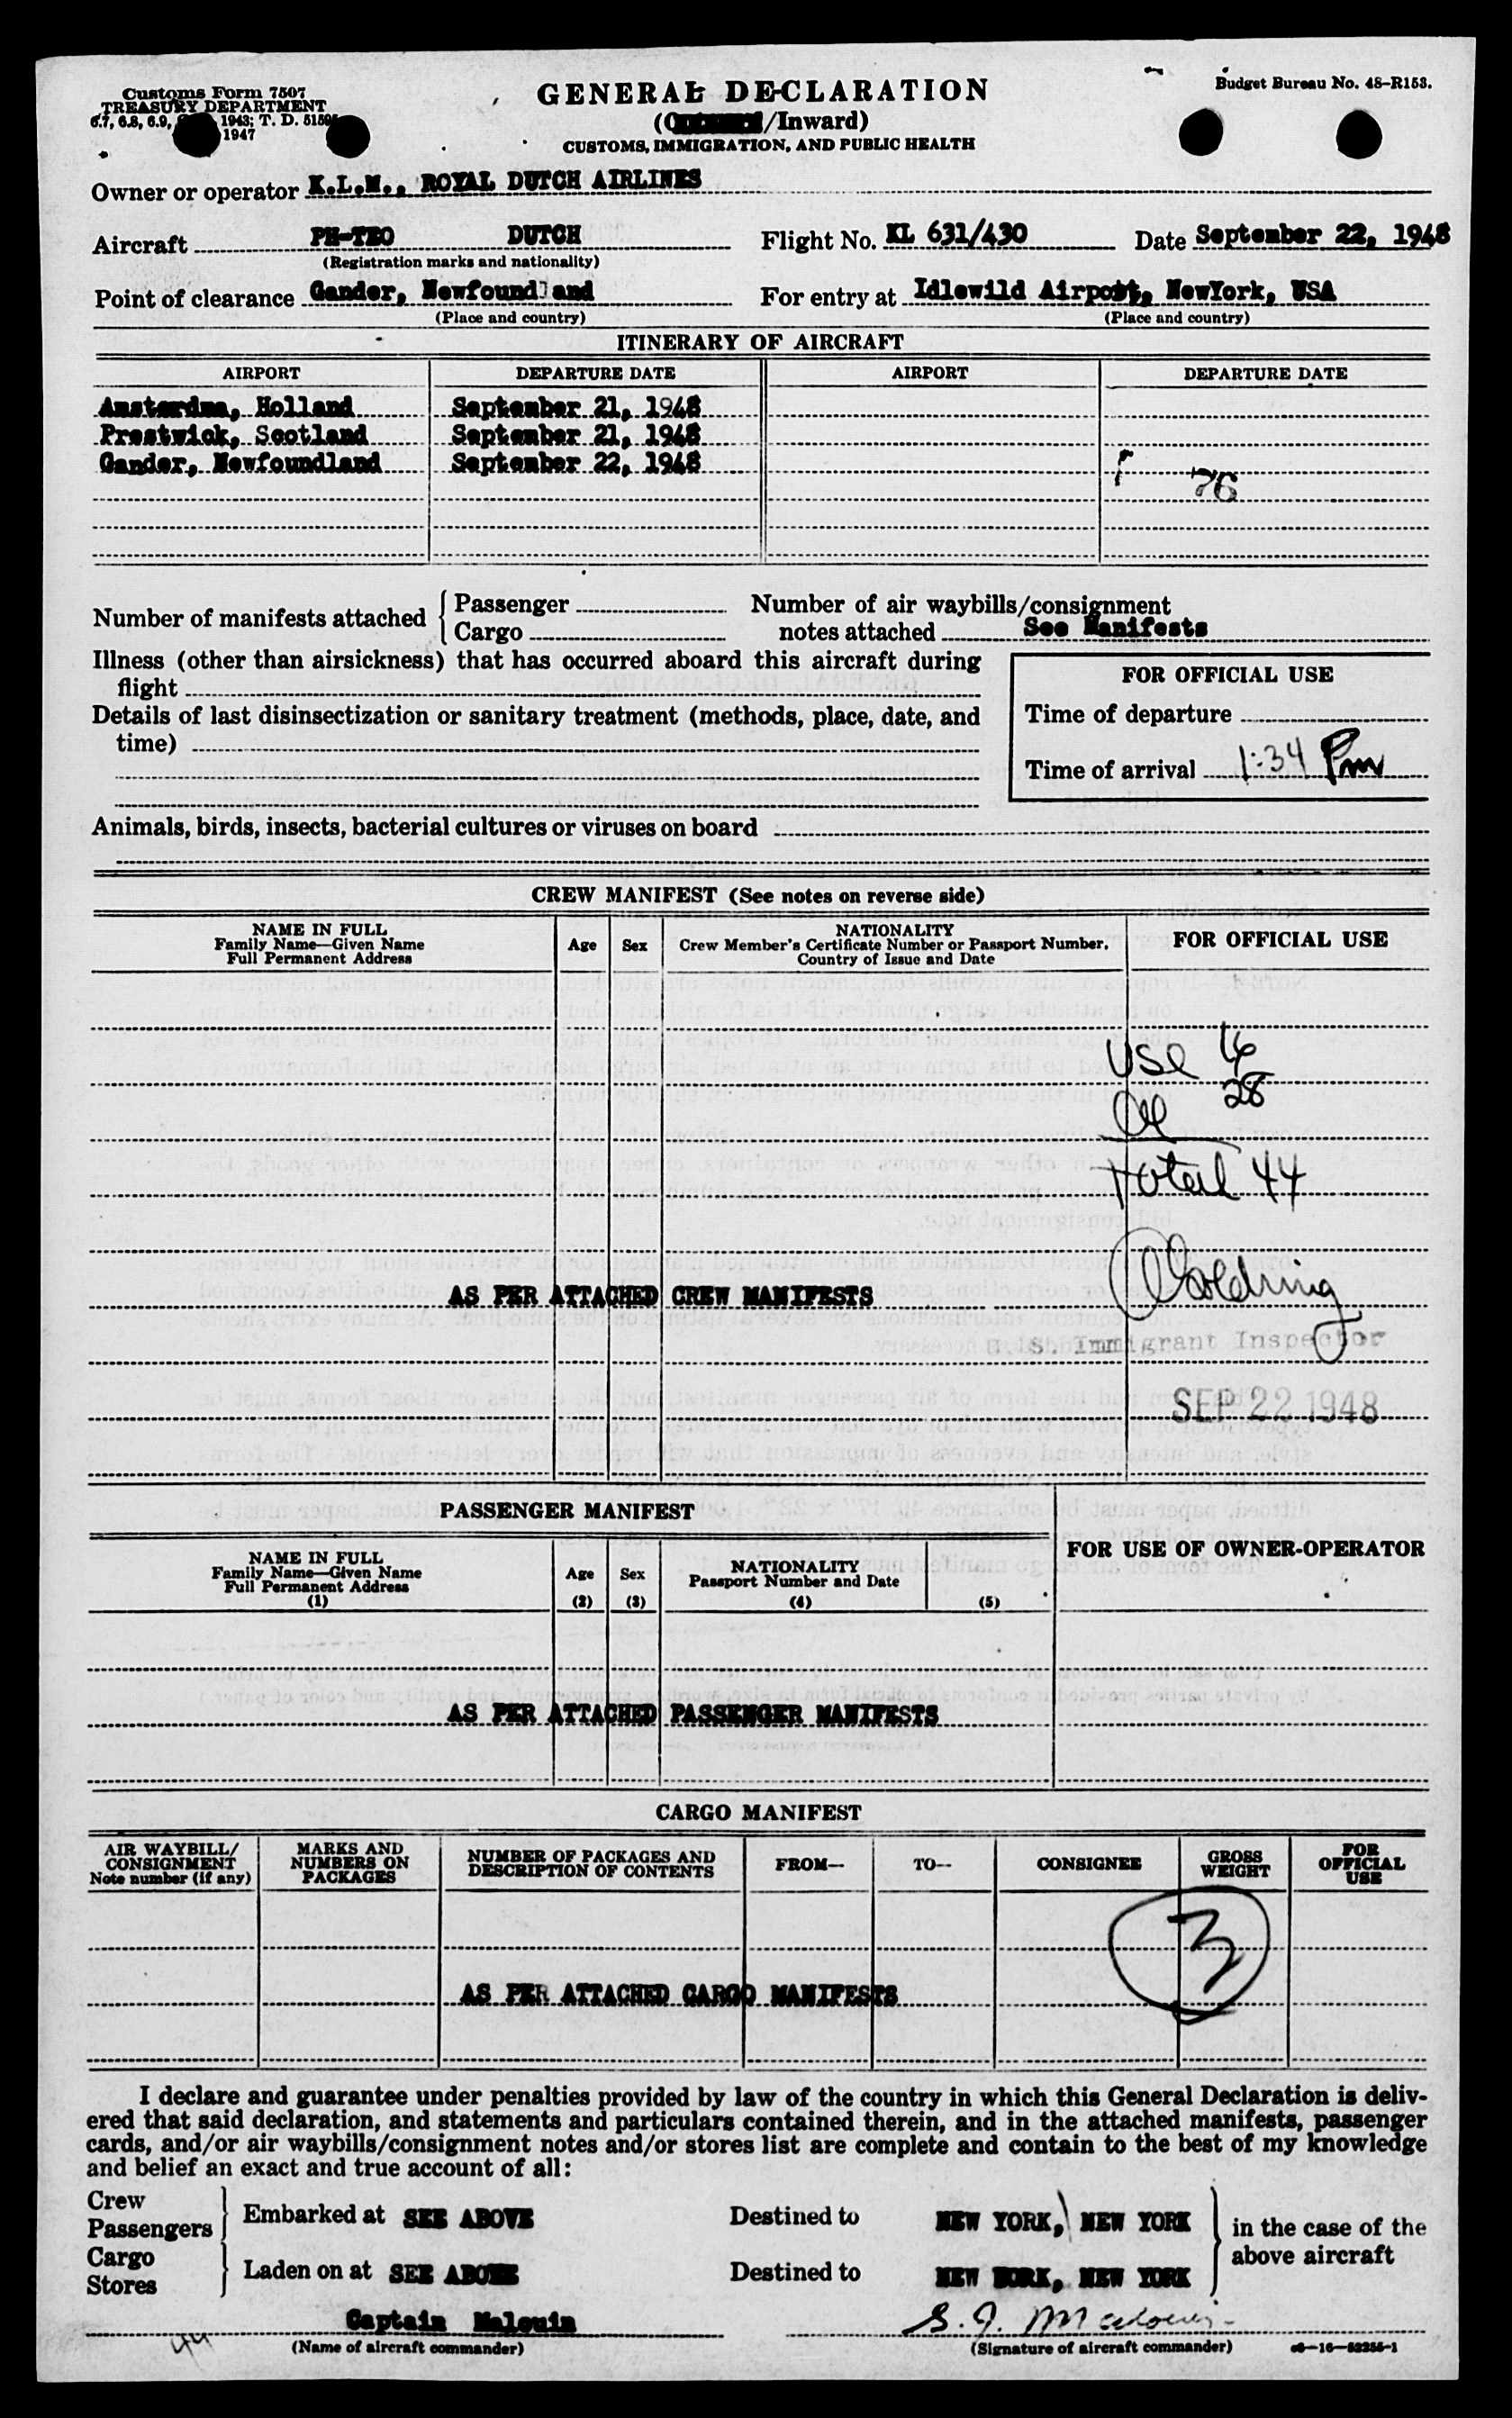 Customs Form 7507
TREASURY DEPARTMENT
6.7, 6.8, 6.9, 1943; T. D. 5159
1947
GENERAL DECLARATION
(/Inward)
CUSTOMS, IMMIGRATION, AND PUBLIC HEALTH
Budget Bureau No. 48-R153.
Owner or operator K.L.M., ROYAL DUTCH AIRLINES
Aircraft PH-TEO DUTCH Flight No. KL 631/430 Date September 22, 1948
(Registration marks and nationality)
Point of clearance Gander, Newfoundland For entry at Idlewild Airport, NewYork, USA
(Place and country) (Place and country)
ITINERARY OF AIRCRAFT
AIRPORT DEPARTURE DATE AIRPORT DEPARTURE DATE
Amsterdma, Holland September 21, 1948
Prestwick, Scotland September 21, 1948
Gander, Newfoundland September 22, 1948
76
Number of manifests attached { Passenger
Cargo
Number of air waybills/consignment
notes attached See Manifests
Illness (other than airsickness) that has occurred aboard this aircraft during
flight
Details of last disinsectization or sanitary treatment (methods, place, date, and
time)
FOR OFFICIAL USE
Time of departure
Time of arrival 1:34 Pm
Animals, birds, insects, bacterial cultures or viruses on board
CREW MANIFEST (See notes on reverse side)
NAME IN FULL
Family Name—Given Name
Full Permanent Address
Age
Sex
NATIONALITY
Crew Member's Certificate Number or Passport Number,
Country of Issue and Date
FOR OFFICIAL USE
USC 16
28
Total 44
AS PER ATTACHED CREW MANIFESTS
U. S. Immigrant Inspector
SEP 22 1948
PASSENGER MANIFEST
NAME IN FULL
Family Name—Given Name
Full Permanent Address
(1)
Age
(2)
Sex
(3)
NATIONALITY
Passport Number and Date
(4)
(5)
FOR USE OF OWNER-OPERATOR
AS PER ATTACHED PASSENGER MANIFESTS
CARGO MANIFEST
AIR WAYBILL/
CONSIGNMENT
Note number (if any)
MARKS AND
NUMBERS ON
PACKAGES
NUMBER OF PACKAGES AND
DESCRIPTION OF CONTENTS
FROM—
TO—
CONSIGNEE
GROSS
WEIGHT
FOR
OFFICIAL
USE
3
AS PER ATTACHED CARGO MANIFESTS
I declare and guarantee under penalties provided by law of the country in which this General Declaration is deliv-
ered that said declaration, and statements and particulars contained therein, and in the attached manifests, passenger
cards, and/or air waybills/consignment notes and/or stores list are complete and contain to the best of my knowledge
and belief an exact and true account of all:
Crew
Passengers } Embarked at SEE ABOVE Destined to NEW YORK, NEW YORK
Cargo
Stores } Laden on at SEE ABOVE Destined to NEW YORK, NEW YORK
} in the case of the
above aircraft
Captain Malouin
44
(Name of aircraft commander)
S. J. Malouin
(Signature of aircraft commander)
c6—16—52255-1